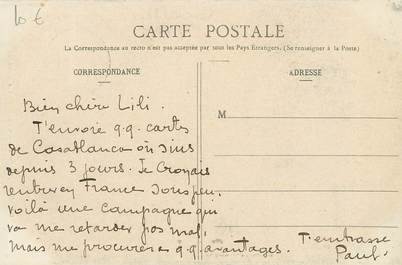 10 €
CARTE POSTALE
La Correspondance au recto n'est pas acceptée par tous les Pays Étrangers. (Se renseigner à la Poste)
CORRESPONDANCE
ADRESSE
M
Bien chère Lili.
T'envoie q.q. cartes
de Casablanca où suis
depuis 3 jours. Je croyais
rentrer en France sous peu.
voilà une campagne qui
va me retarder pas mal,
mais me procurera q.q. avantages.
T'embrasse
Paul.